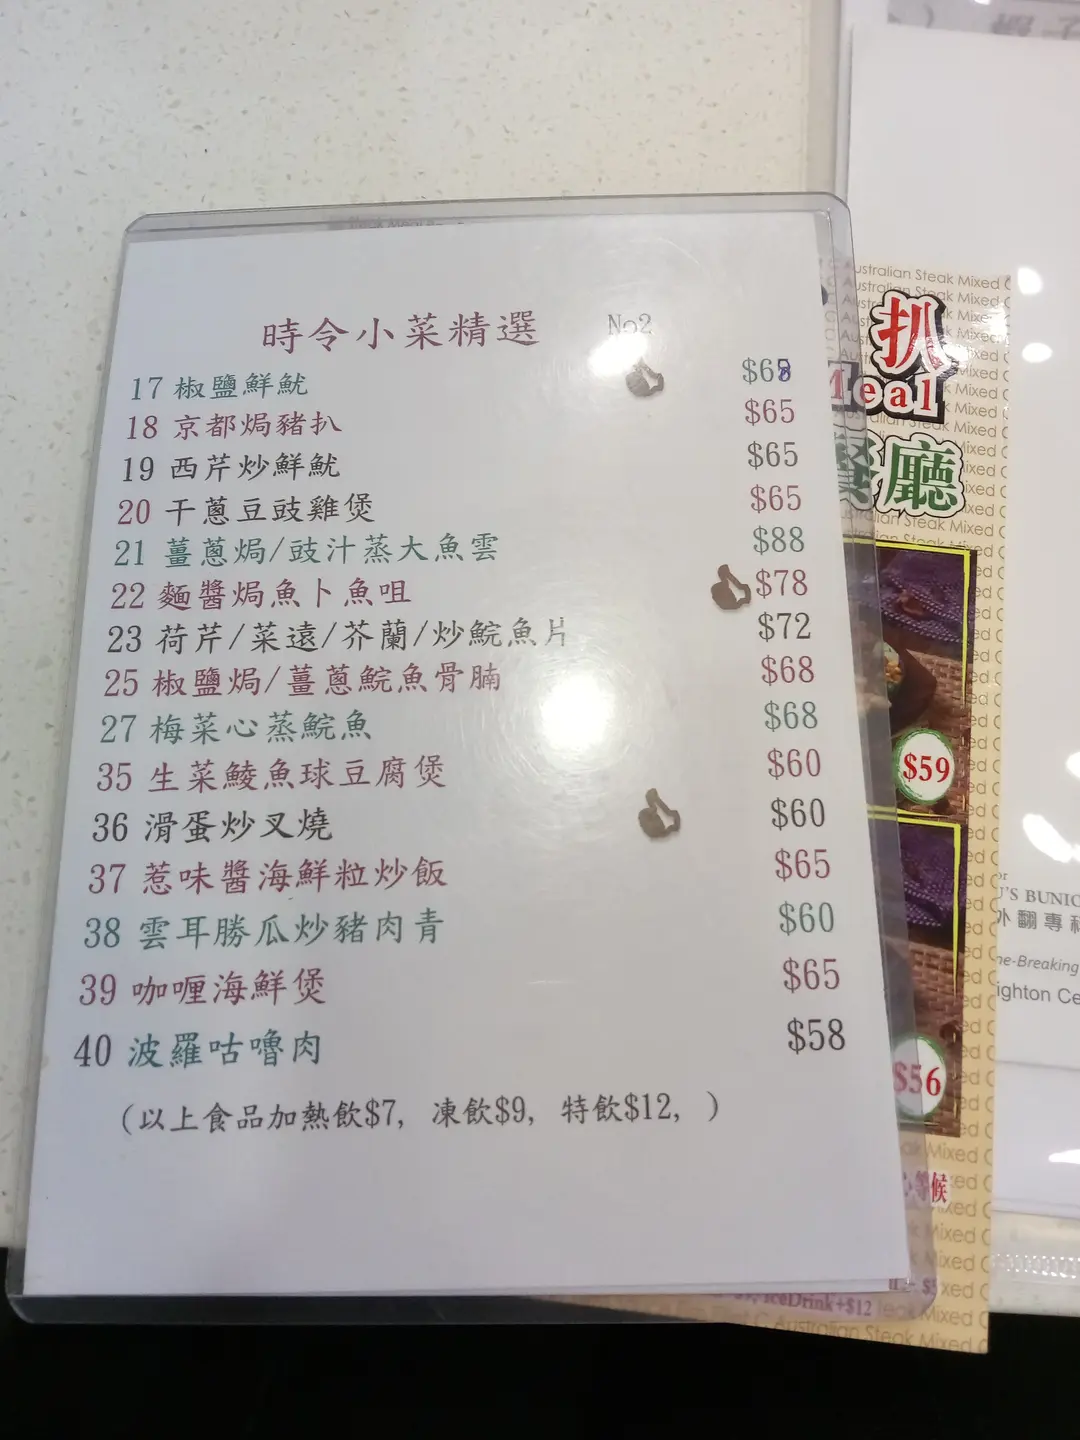 時令小菜精選 No2
17 椒鹽鮮魷 $68
18 京都焗豬扒 $65
19 西芹炒鮮魷 $65
20 干蔥豆豉雞煲 $65
21 薑蔥焗/豉汁蒸大魚雲 $88
22 麵醬焗魚卜魚咀 $78
23 荷芹/菜遠/芥蘭/炒鯇魚片 $72
25 椒鹽焗/薑蔥鯇魚骨腩 $68
27 梅菜心蒸鯇魚 $68
35 生菜鯪魚球豆腐煲 $60
36 滑蛋炒叉燒 $60
37 惹味醬海鮮粒炒飯 $65
38 雲耳勝瓜炒豬肉青 $60
39 咖喱海鮮煲 $65
40 波羅咕嚕肉 $58
(以上食品加熱飲$7, 凍飲$9, 特飲$12, )
扒
Meal
餐廳
$59
$56
等候
IceDrink+$12
Australian Steak Mixed
'S BUNIC
外翻專科
ne-Breaking
ighton Ce